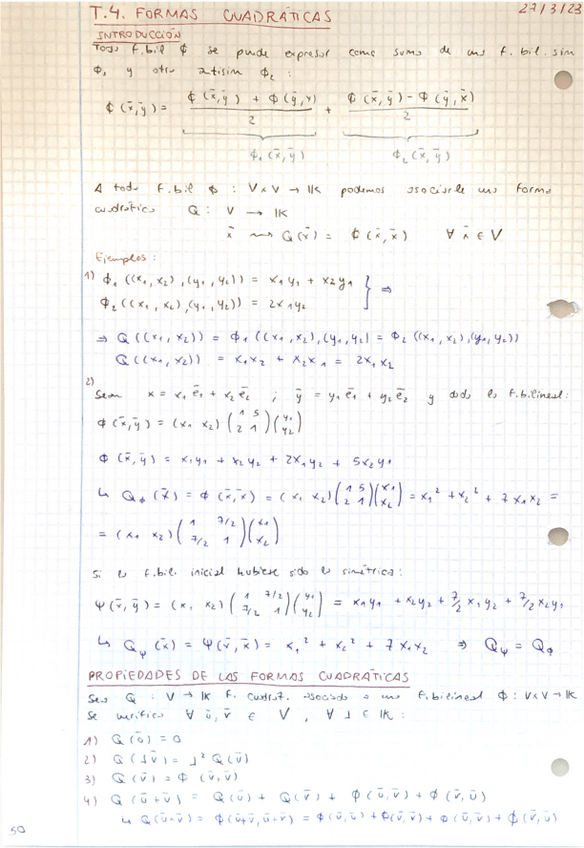 T.4. FORMAS CUADRÁTICAS 27/3/23
INTRODUCCIÓN
Toda f.bil ϕ se puede expresar como suma de una f. bil. sim
ϕ₁ y otra antisim ϕ₂ :
ϕ(x̄,ȳ) = (ϕ(x̄,ȳ) + ϕ(ȳ,x̄))/2 + (ϕ(x̄,ȳ) - ϕ(ȳ,x̄))/2
ϕ₁(x̄,ȳ) ϕ₂(x̄,ȳ)
A toda f.bil ϕ : V×V → IK podemos asociarle una forma
cuadrática Q : V → IK
x̄ ⟿ Q(x̄) = ϕ(x̄,x̄) ∀ x̄ ∈ V
Ejemplos :
1) ϕ₁((x₁,x₂),(y₁,y₂)) = x₁y₂ + x₂y₁ } ⇒
ϕ₂((x₁,x₂),(y₁,y₂)) = 2x₁y₂
⇒ Q((x₁,x₂)) = ϕ₁((x₁,x₂),(y₁,y₂) = ϕ₂((x₁,x₂),(y₁,y₂))
Q((x₁,x₂)) = x₁x₂ + x₂x₁ = 2x₁x₂
2)
Sean x = x₁ē₁ + x₂ē₂ ; ȳ = y₁ē₁ + y₂ē₂ y dada la f.bilineal:
ϕ(x̄,ȳ) = (x₁ x₂) (1 5 / 2 1) (y₁ / y₂)
ϕ(x̄,ȳ) = x₁y₁ + x₂y₂ + 2x₁y₂ + 5x₂y₁
↳ Q_ϕ(x̄) = ϕ(x̄,x̄) = (x₁ x₂) (1 5 / 2 1) (x₁ / x₂) = x₁² + x₂² + 7x₁x₂ =
= (x₁ x₂) (1 7/2 / 7/2 1) (x₁ / x₂)
Si la f.bil. inicial hubiese sido la simétrica :
Ψ(x̄,ȳ) = (x₁ x₂) (1 7/2 / 7/2 1) (y₁ / y₂) = x₁y₁ + x₂y₂ + 7/2 x₁y₂ + 7/2 x₂y₁
↳ Q_Ψ(x̄) = Ψ(x̄,x̄) = x₁² + x₂² + 7x₁x₂ ⇒ Q_Ψ = Q_ϕ
PROPIEDADES DE LAS FORMAS CUADRÁTICAS
Sea Q : V → IK f. cuadrát. asociada a una f.bilineal ϕ : V×V → IK
Se verifica ∀ ū, v̄ ∈ V , ∀ λ ∈ IK :
1) Q(ō) = 0
2) Q(λv̄) = λ² Q(v̄)
3) Q(v̄) = ϕ(v̄,v̄)
4) Q(ū+v̄) = Q(ū) + Q(v̄) + ϕ(ū,v̄) + ϕ(v̄,ū)
↳ Q(ū+v̄) = ϕ(ū+v̄,ū+v̄) = ϕ(ū,ū) + ϕ(v̄,v̄) + ϕ(ū,v̄) + ϕ(v̄,ū)
50